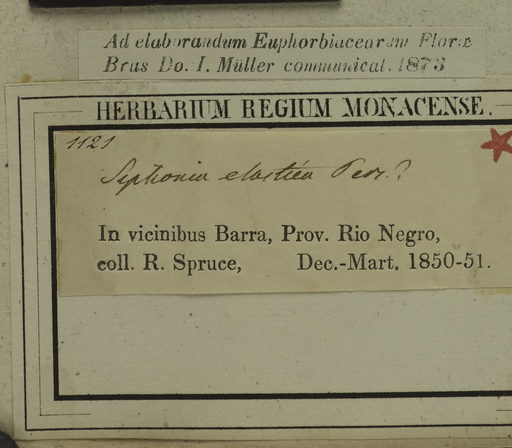 Ad elaborandum Euphorbiacearum Floræ
Bras Do. I. Müller communicat. 1873
HERBARIUM REGIUM MONACENSE.
1121
Siphonia elastica Pers.?
In vicinibus Barra, Prov. Rio Negro,
coll. R. Spruce, Dec.-Mart. 1850-51.